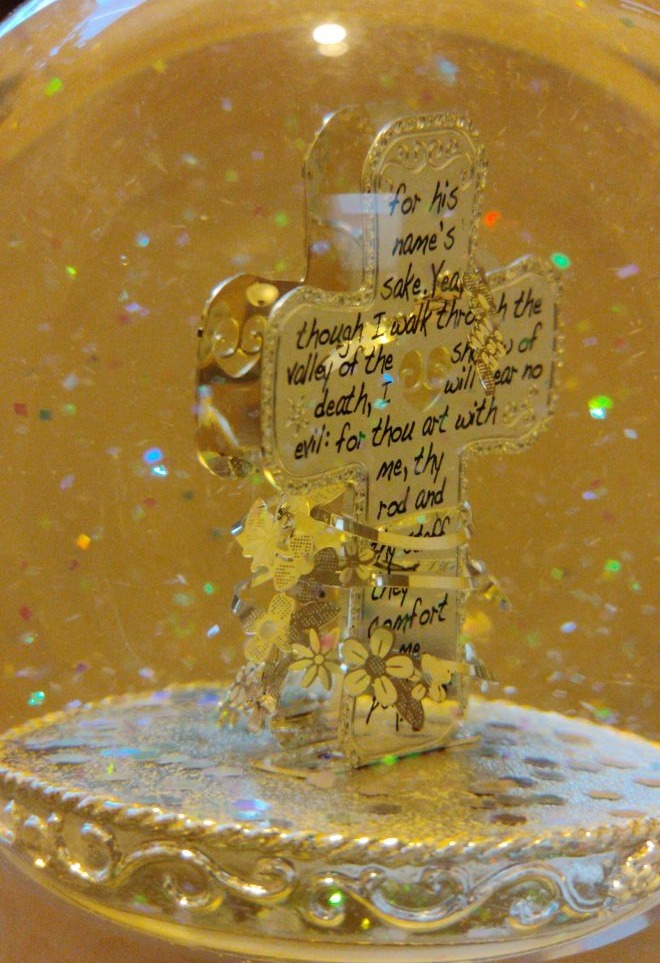 for his
name's
sake. Yea,
though I walk through the
valley of the shadow of
death, I will fear no
evil: for thou art with
me, thy
rod and
thy staff
they
comfort
me.